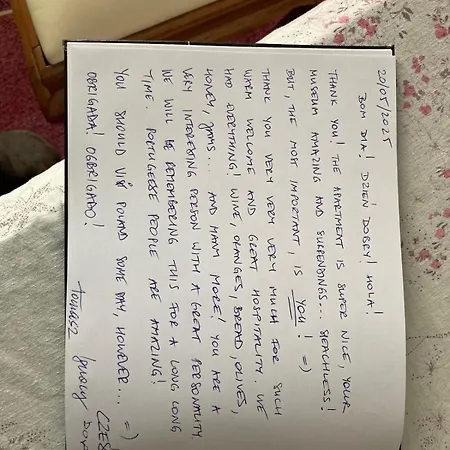 20/05/2025
BOM DIA! DZIEŃ DOBRY! HOLA!
THANK YOU! THE APARTMENT IS SUPER NICE, YOUR
MUSEUM AMAZING AND SURRENDINGS... SPEACHLESS!
BUT, THE MOST IMPORTANT, IS YOU! =)
THANK YOU VERY VERY VERY MUCH FOR SUCH
WARM WELCOME AND GREAT HOSPITALITY. WE
HAD EVERYTHING! WINE, ORANGES, BREAD, OLIVES,
HONEY, ... AND MANY MORE! YOU ARE A
VERY INTERESTING PERSON WITH A GREAT PERSONALITY.
WE WILL BE REMEMBERING THIS FOR A LONG LONG
TIME. PORTUGEESE PEOPLE ARE AMAZING!
YOU SHOULD POLAND SOME DAY, HOWEVER... =)
OBRIGADA! OBRIGADO!
TOMASZ